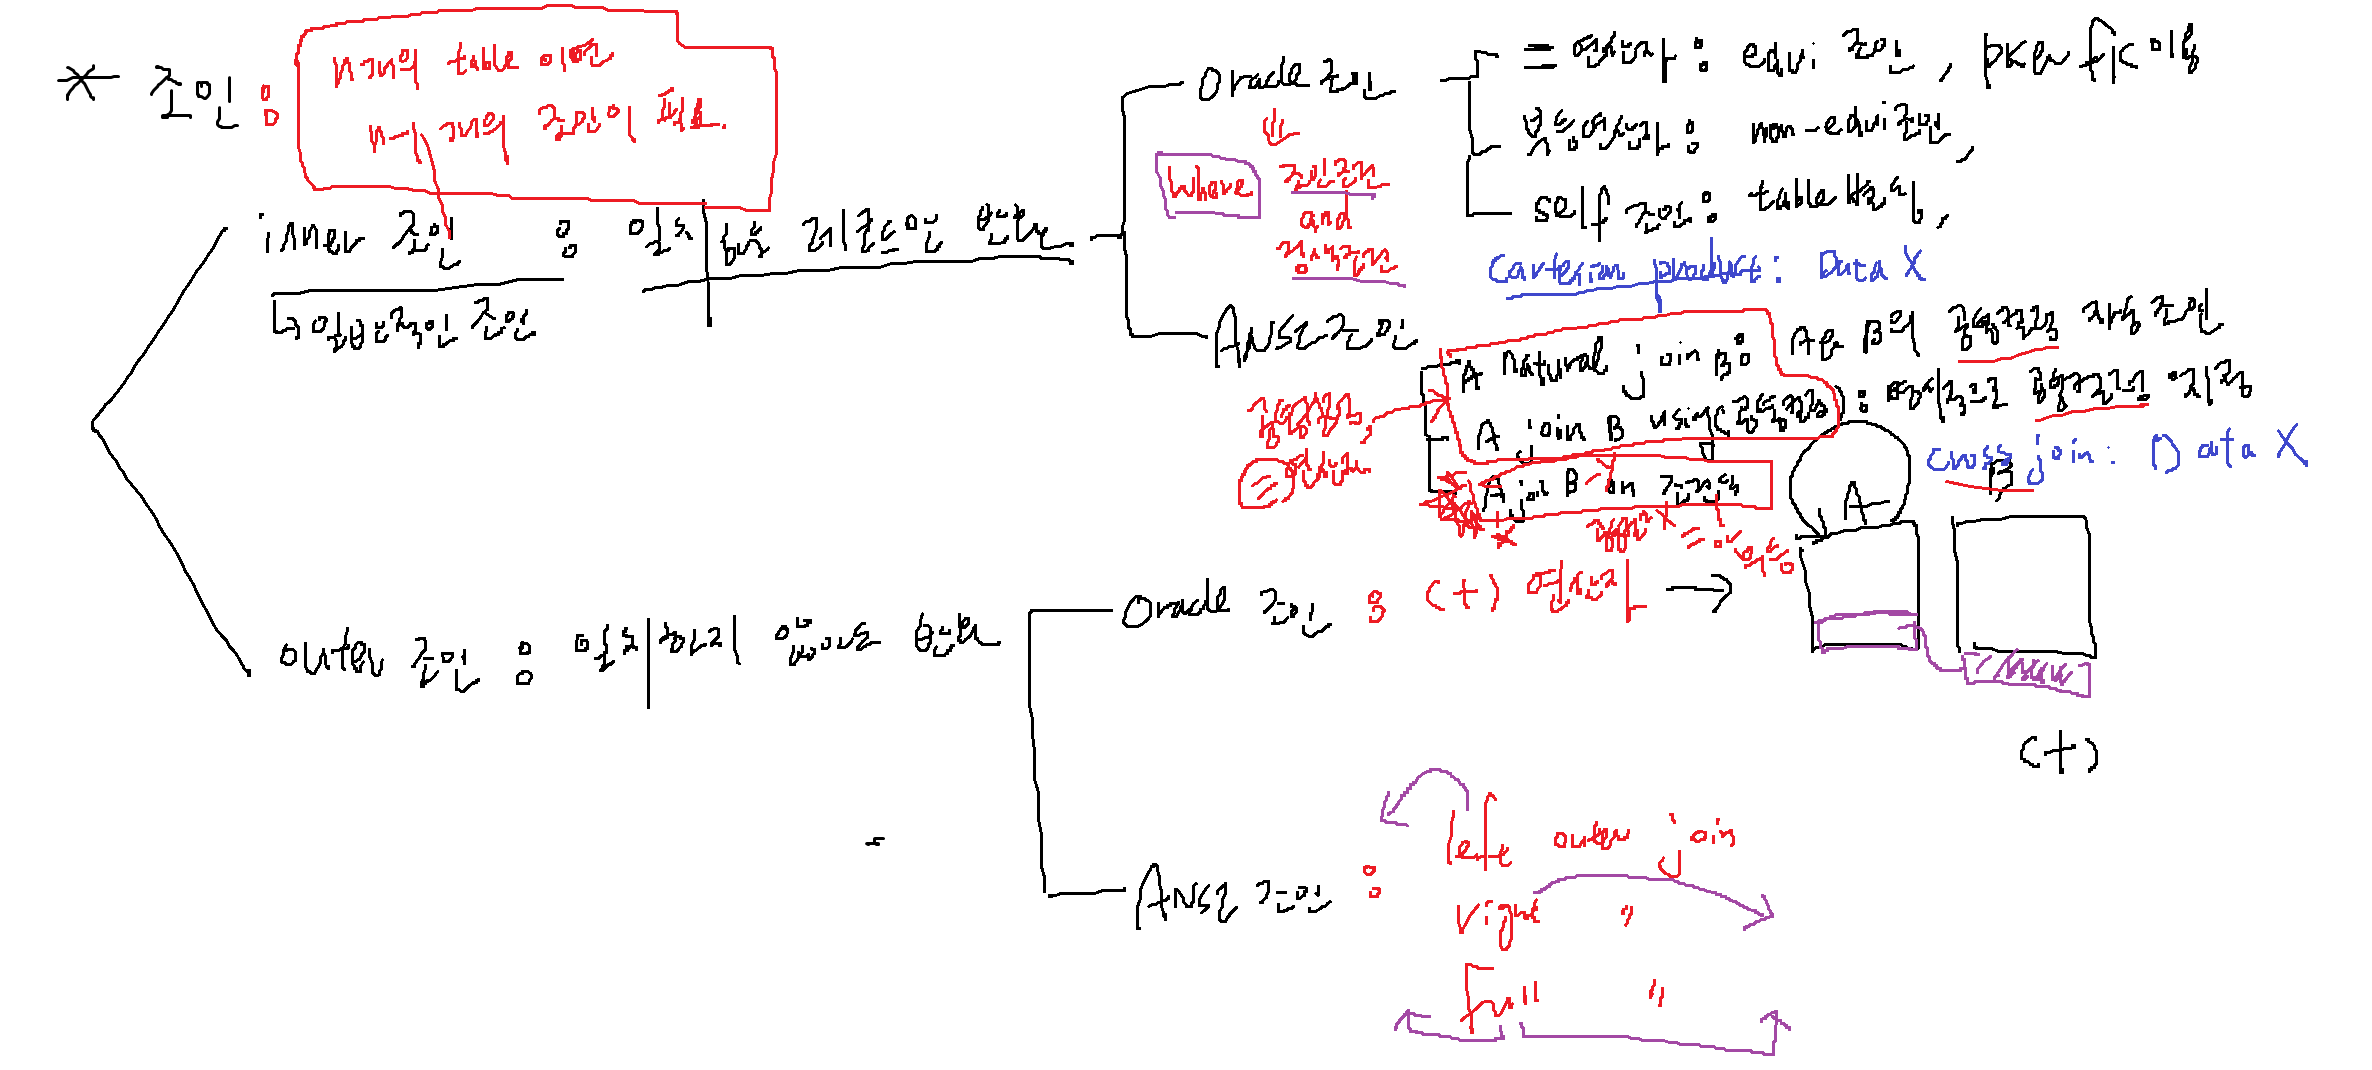 * 조인 :
n개의 table 이면
n-1 개의 조인이 필요.
inner 조인 : 일치하는 레코드만 반환
↳ 일반적인 조인
Oracle 조인
⇓
where 조인조건
and
검색조건
= 연산자 : equi 조인, pk와 fk 이용
부등연산자 : non-equi조인,
self 조인 : table 별칭,
Cartesian product : Data X
ANSI 조인
A natural join B : A와 B의 공통컬럼 자동 조인
A join B using(공통컬럼) : 명시적으로 공통컬럼 지정
A join B on 조건식
공통컬럼,
= 연산자
공통컬럼 X
= , 부등
cross join : Data X
A
B
outer 조인 : 일치하지 않아도 반환
Oracle 조인 : (+) 연산자 →
(+)
ANSI 조인 : left outer join
right "
Full "